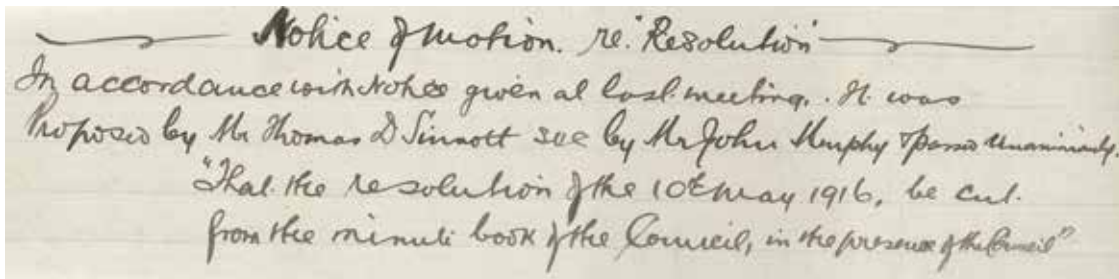 Notice of motion. re "Resolution"
In accordance with Notice given at last meeting. It was
Proposed by Mr Thomas D Sinnott sec by Mr John Murphy & passed Unanimously.
"That the resolution of the 10th May 1916, be cut.
from the minute book of the Council, in the presence of the Council"